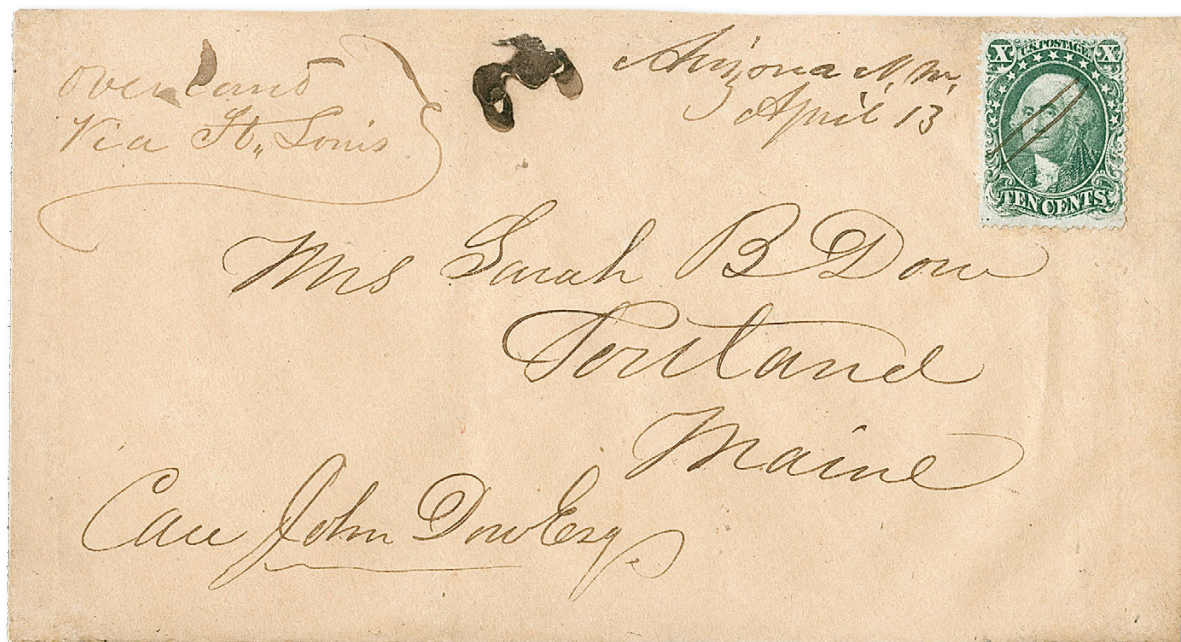 overland
Via St,, Louis
Arizona N, M,
April 13
X U.S. POSTAGE X
TEN CENTS
Mrs Sarah B Dow
Portland
Maine
Care John Dow Esq